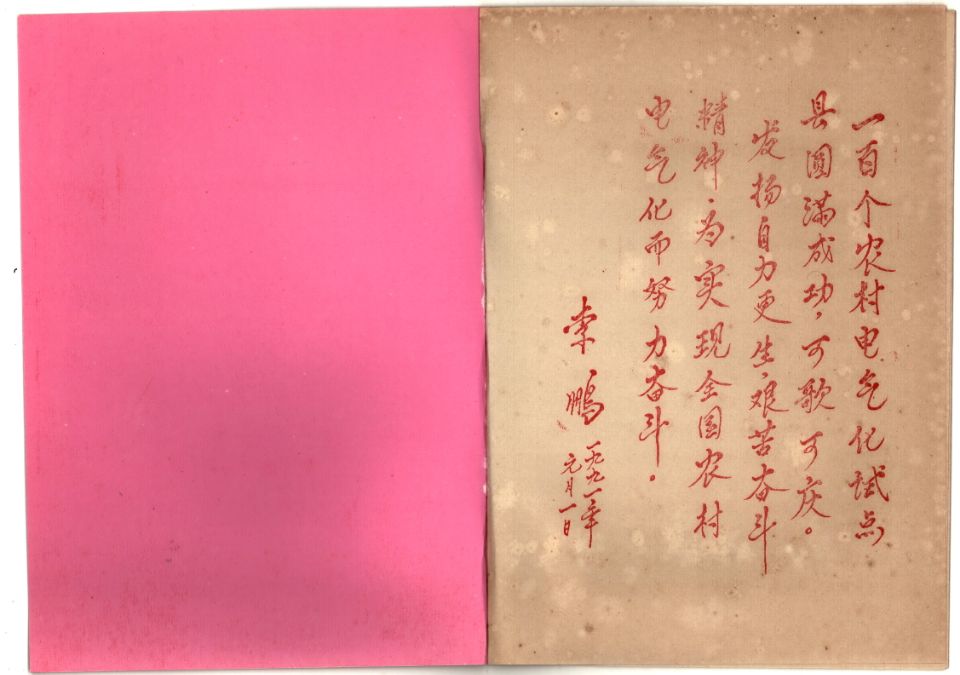 一百个农村电气化试点
县圆满成功，可歌可庆。
发扬自力更生、艰苦奋斗
精神、为实现全国农村
电气化而努力奋斗。
李鹏
一九九一年
元月一日